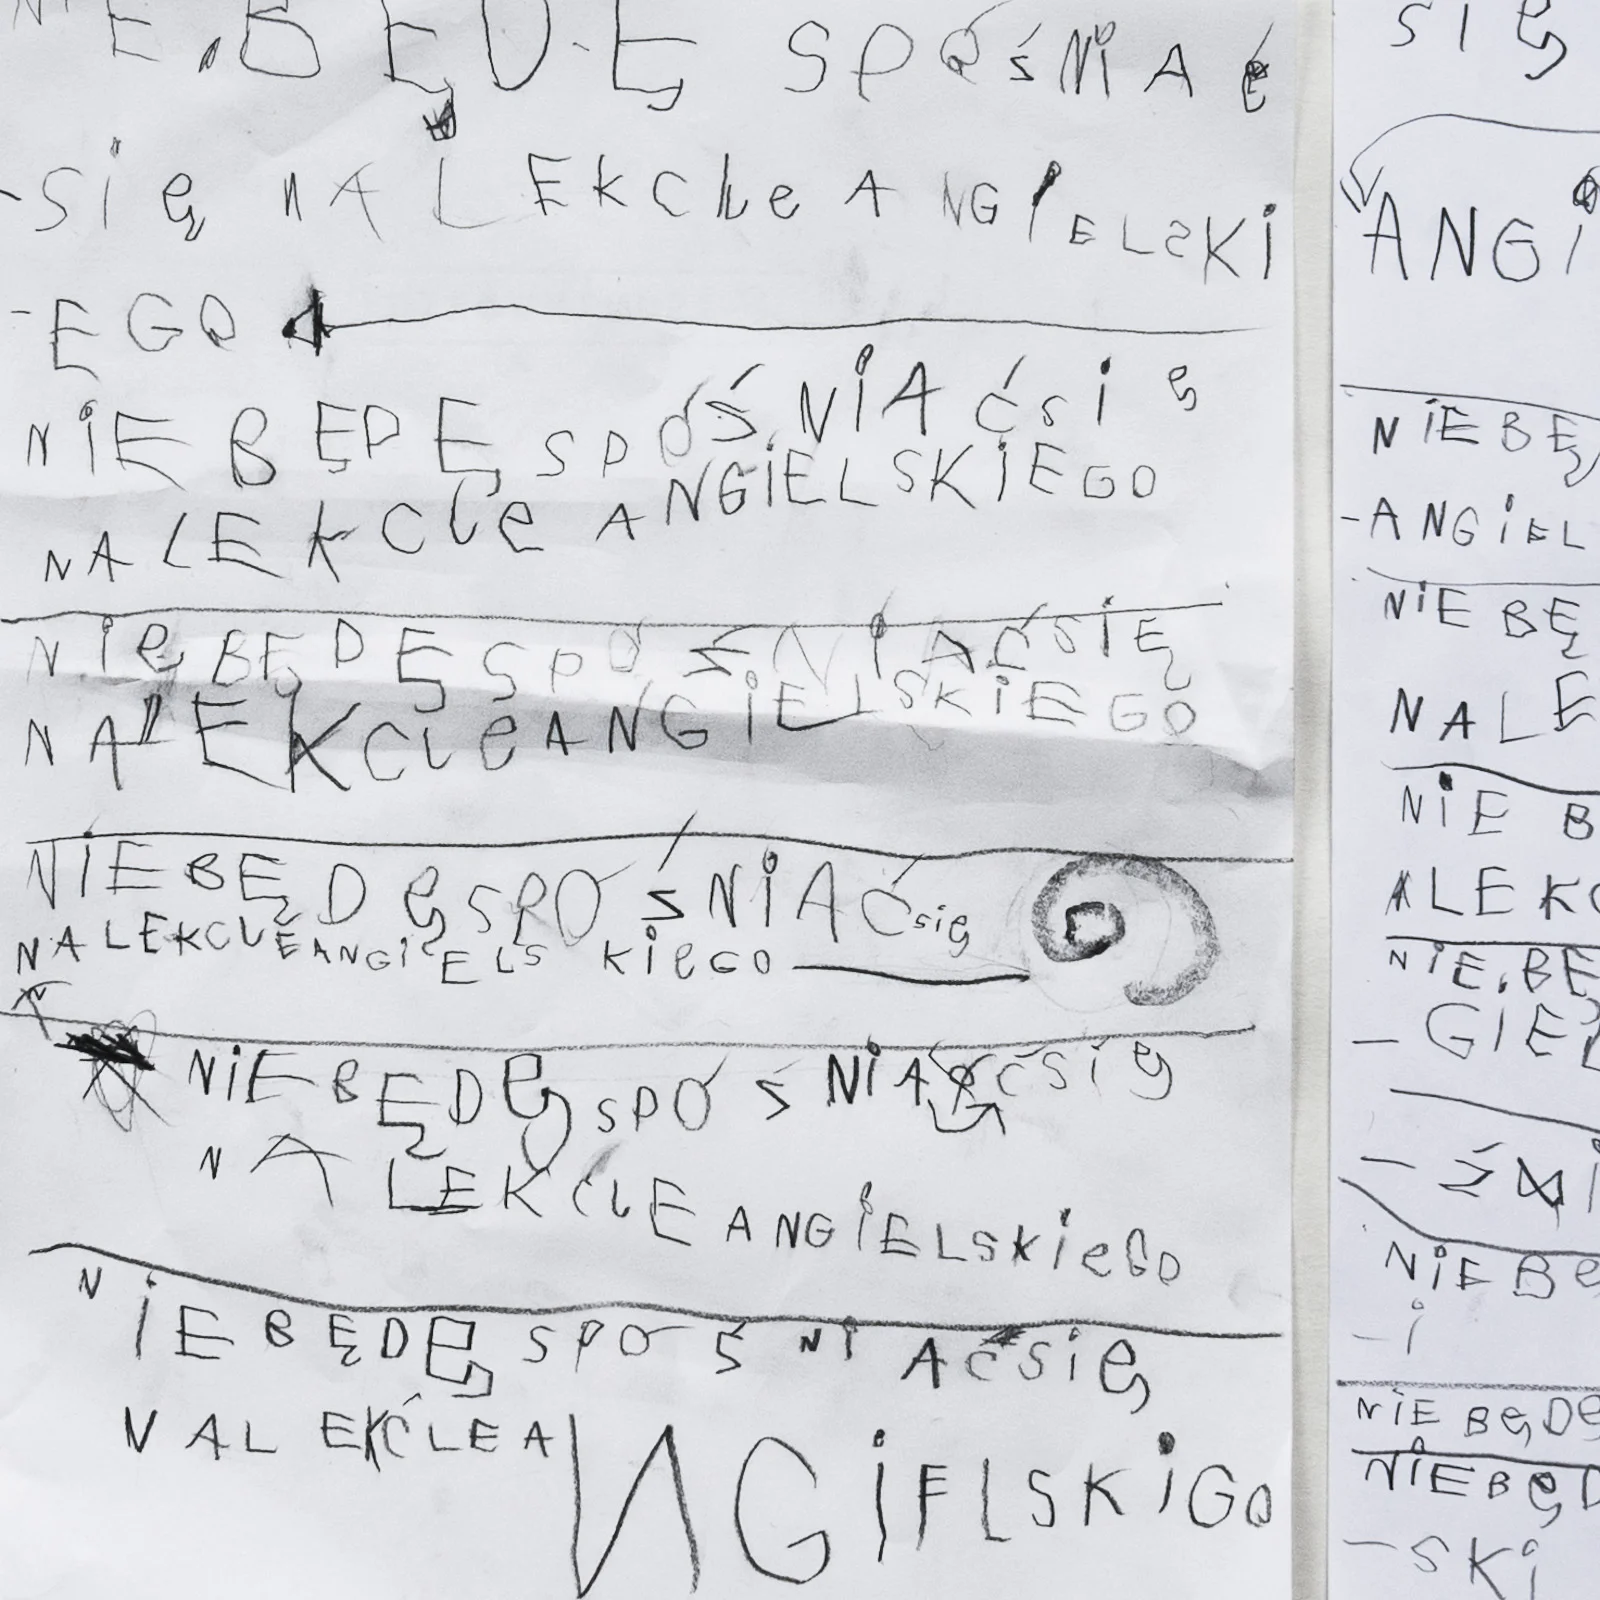 NIE BĘDĘ SPÓŚNIAĆ
-SIĘ NA LEKCLE ANGIELSKI
-EGO
NIE BĘDĘ SPÓŚNIAĆ SIĘ
NA LEKCLE ANGIELSKIEGO
NIĘ BĘDĘ SPÓŚNIAĆ SIĘ
NA LEKCLE ANGIELSKIEGO
NIE BĘDĘ SPÓŚNIAĆ SIĘ
NA LEKCLE ANGIELSKIEGO
NIE BĘDĘ SPÓŚNIAĆ SIĘ
NA LEKCLE ANGIELSKIEGO
NIE BĘDĘ SPÓŚNIAĆ SIĘ
NA LEKĆLE ANGIELSKIGO
SIĘ
ANGI
NIE BĘ
-ANGIEL
NIE BĘ
NA LE
NIE B
ALEKC
NIE BĘ
-GIEL
-ŚNI
NIE BĘ
-I
NIE BĘDĘ
NIE BĘD
-SKI